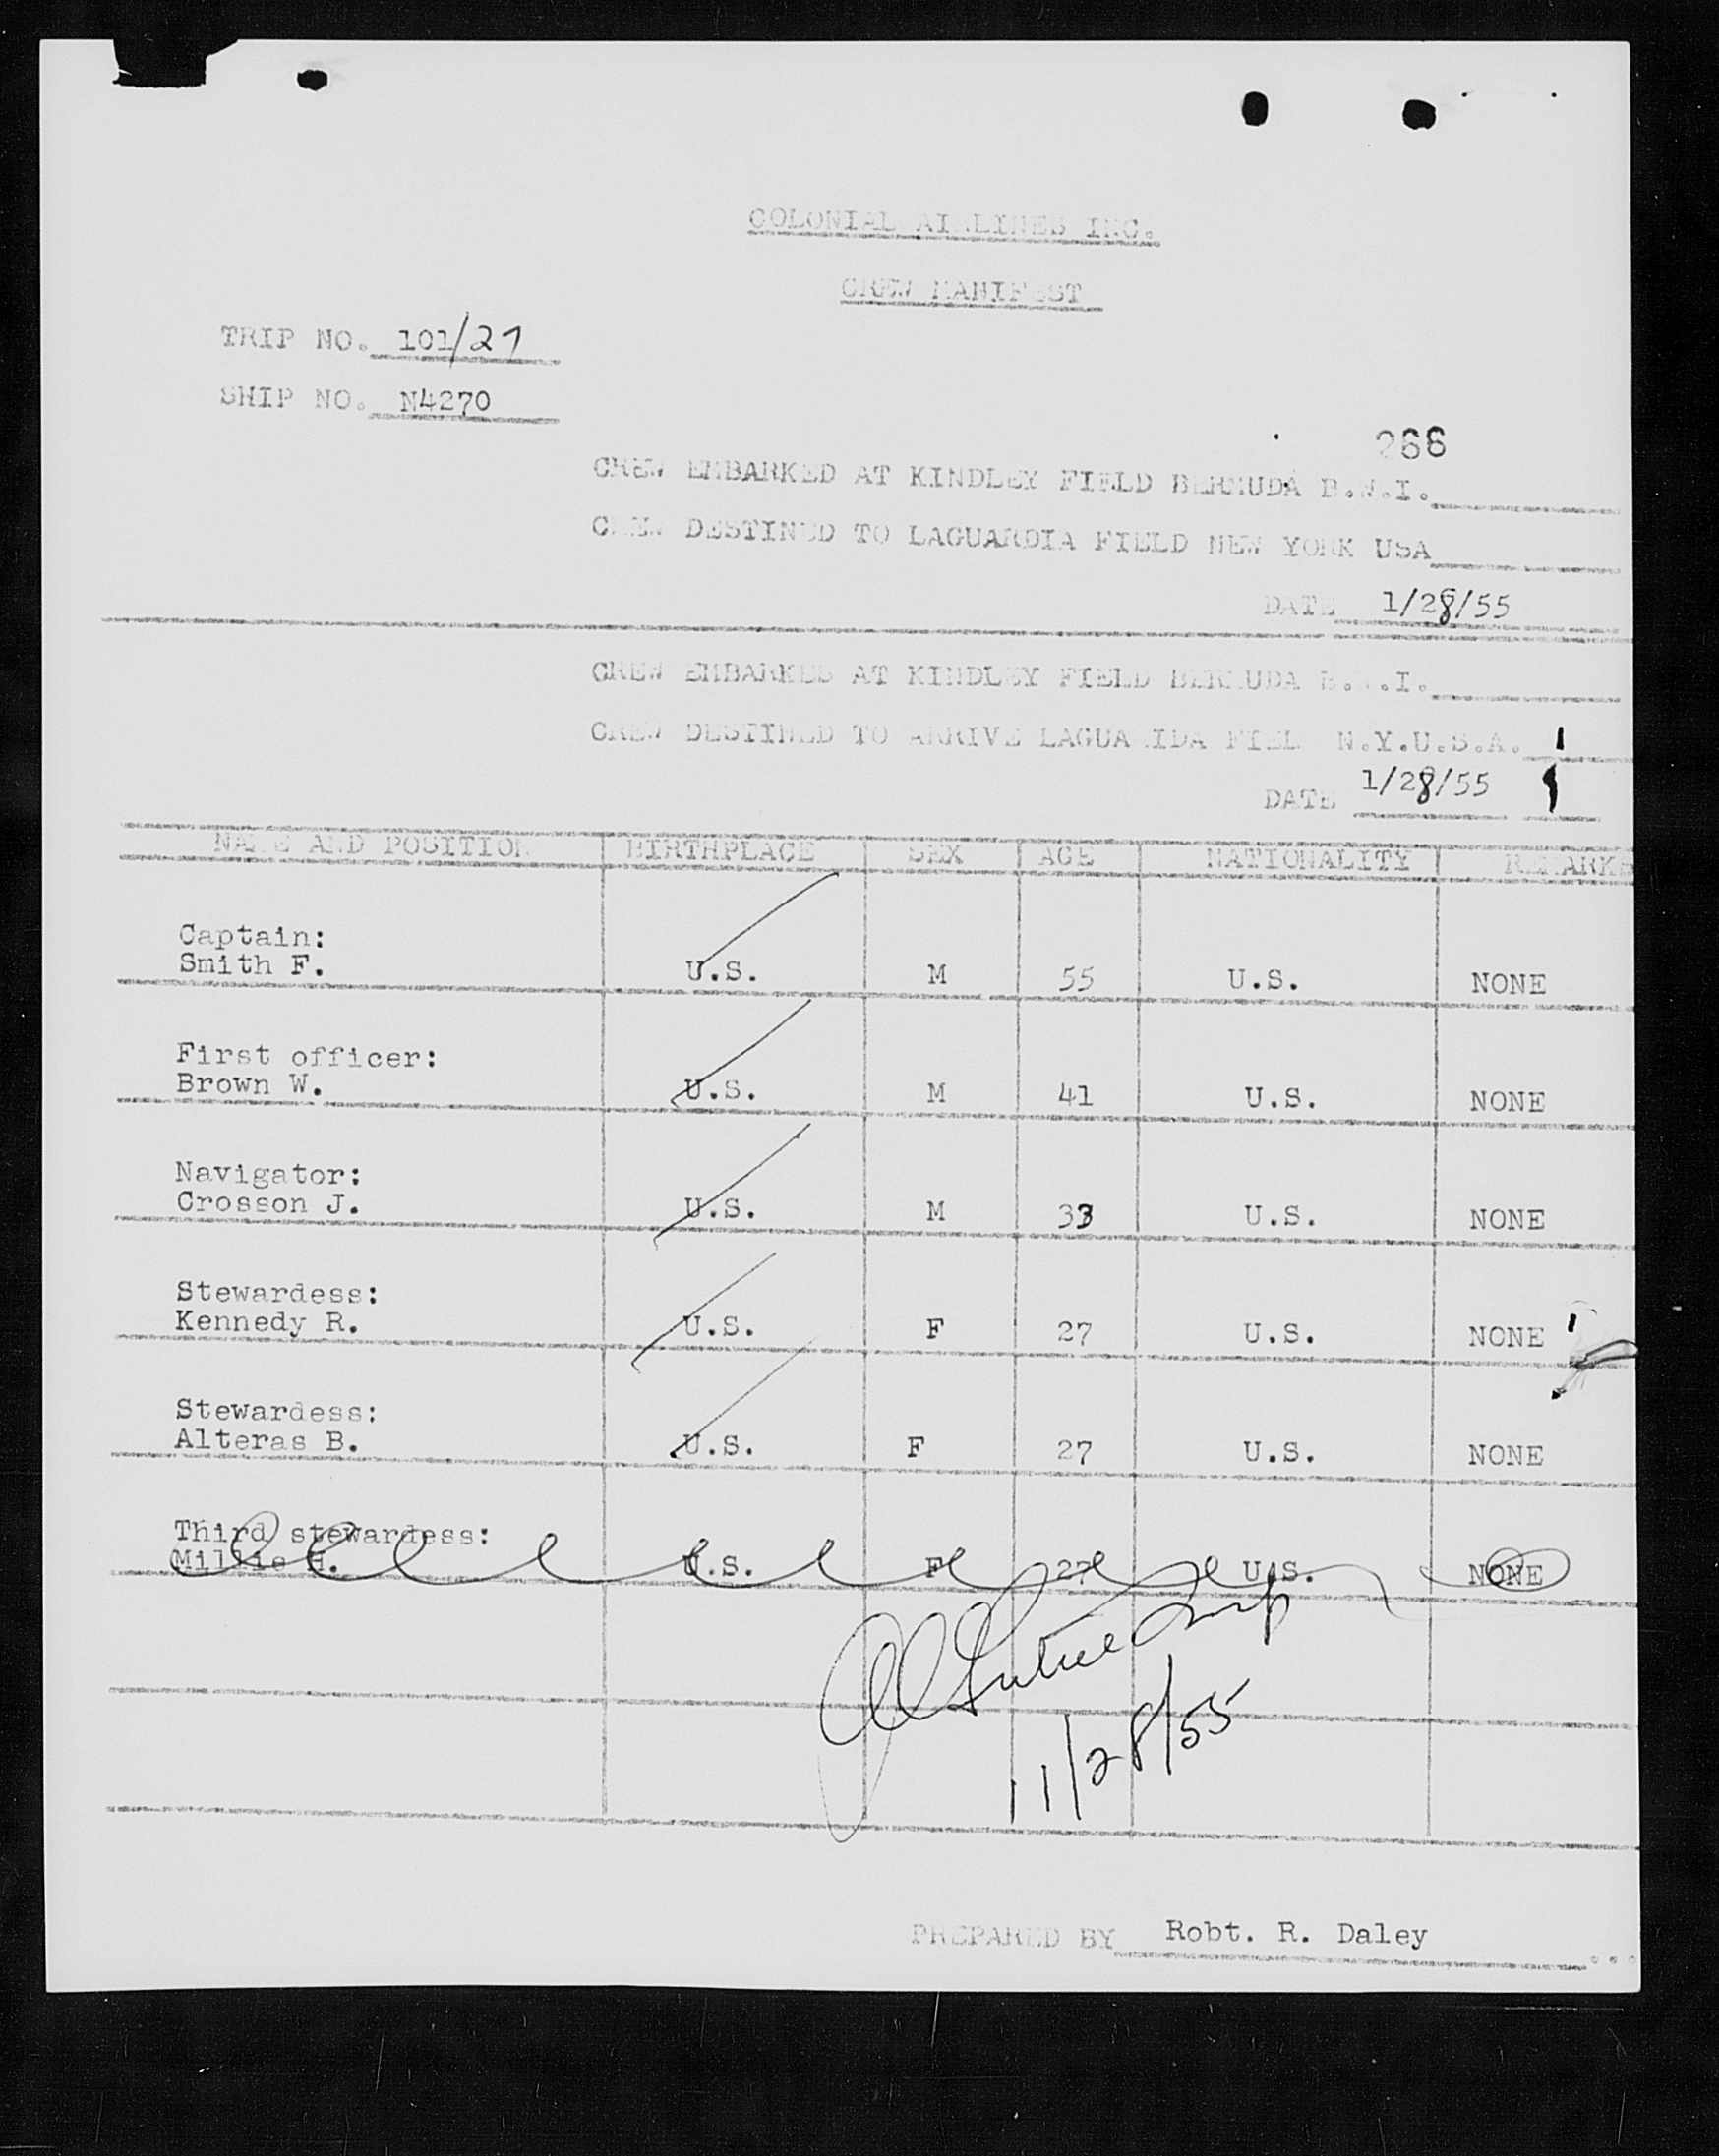 COLONIAL AIRLINES INC.
CREW MANIFEST
TRIP NO. 101/27
SHIP NO. N4270
266
CREW EMBARKED AT KINDLEY FIELD BERMUDA B.W.I.
CREW DESTINED TO LAGUARDIA FIELD NEW YORK USA
DATE 1/28/55
CREW EMBARKES AT KINDLEY FIELD BERMUDA B.W.I.
CREW DESTINED TO ARRIVE LAGUARIDA FIELD N.Y.U.S.A.
DATE 1/28/55
NAME AND POSITION BIRTHPLACE SEX AGE NATIONALITY REMARKS
Captain:
Smith F. U.S. M 55 U.S. NONE
First officer:
Brown W. U.S. M 41 U.S. NONE
Navigator:
Crosson J. U.S. M 33 U.S. NONE
Stewardess:
Kennedy R. U.S. F 27 U.S. NONE
Stewardess:
Alteras B. U.S. F 27 U.S. NONE
Third stewardess:
Millie H. U.S. F 27 U.S. NONE
11/28/55
PREPARED BY Robt. R. Daley